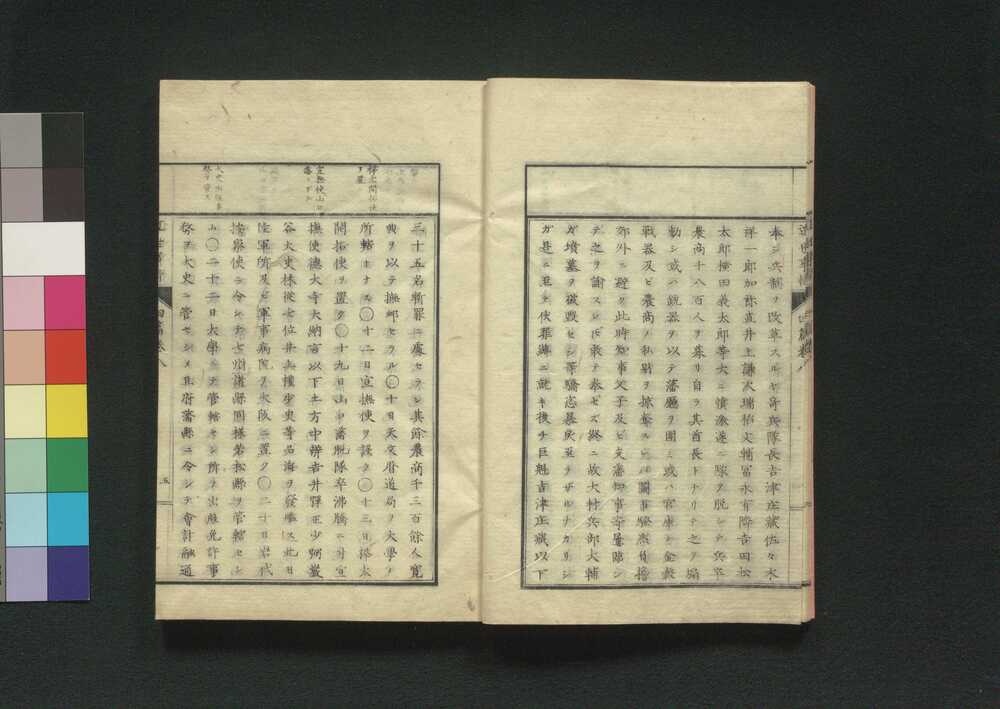 奉シ兵制ヲ改革スルヤ奇兵隊長吉津庄蔵佐々木
祥一郎加弥真井上謙大瑞裕丈輔冨永有隣吉田松
太郎榎田義太郎等大ニ憤激遂ニ隊ヲ脱シテ兵卒
農商十八百人ヲ募リ自ラ其酋長トナリテ之ヲ煽
動シ或ハ銃器ヲ以テ藩廳ヲ圍ミ或ハ官庫ノ金穀
戦器及ヒ農商ノ私財ヲ掠奪
郊外ニ避ク此時知事父子及ヒ支藩知事等屡隊ニ
テ之ヲ謝スレトモ敢テ奉セズ終ニ故大村兵部大輔
ガ墳墓ヲ破毀セシ等驕恣暴戻至ラザルナカリシ
ガ是ニ至テ伏罪跡ニ就キ後チ巨魁吉津庄蔵以下
三十五名斬罪ニ處セラレ其餘農商千三百餘人寛
典ヲ以テ撫卹セラル〇十日天文暦道局ヲ大學ノ
所轄トナス〇十二日宣撫使ヲ設ク〇十三日樺太
開拓使ヲ置ク〇十九日山口藩脱隊卒沸騰ニ付宣
撫使徳大寺大納言以下土方中辨吉井彈正少弼巖
谷大史林從七位井上權少史等品海ヲ發艦ス此日
陸軍所及ヒ軍事病院ヲ大阪ニ置ク〇二十日岩代
按察使ニ令シテ七州諸縣同様若松縣ヲ管轄セシ
ム〇二十二日大學ニテ管轄セシ所ノ出版免許事
務ヲ大史ニ管セシメ且府藩縣ニ令シテ會計融通
樺太開拓使
ヲ置
宣撫使山口
五